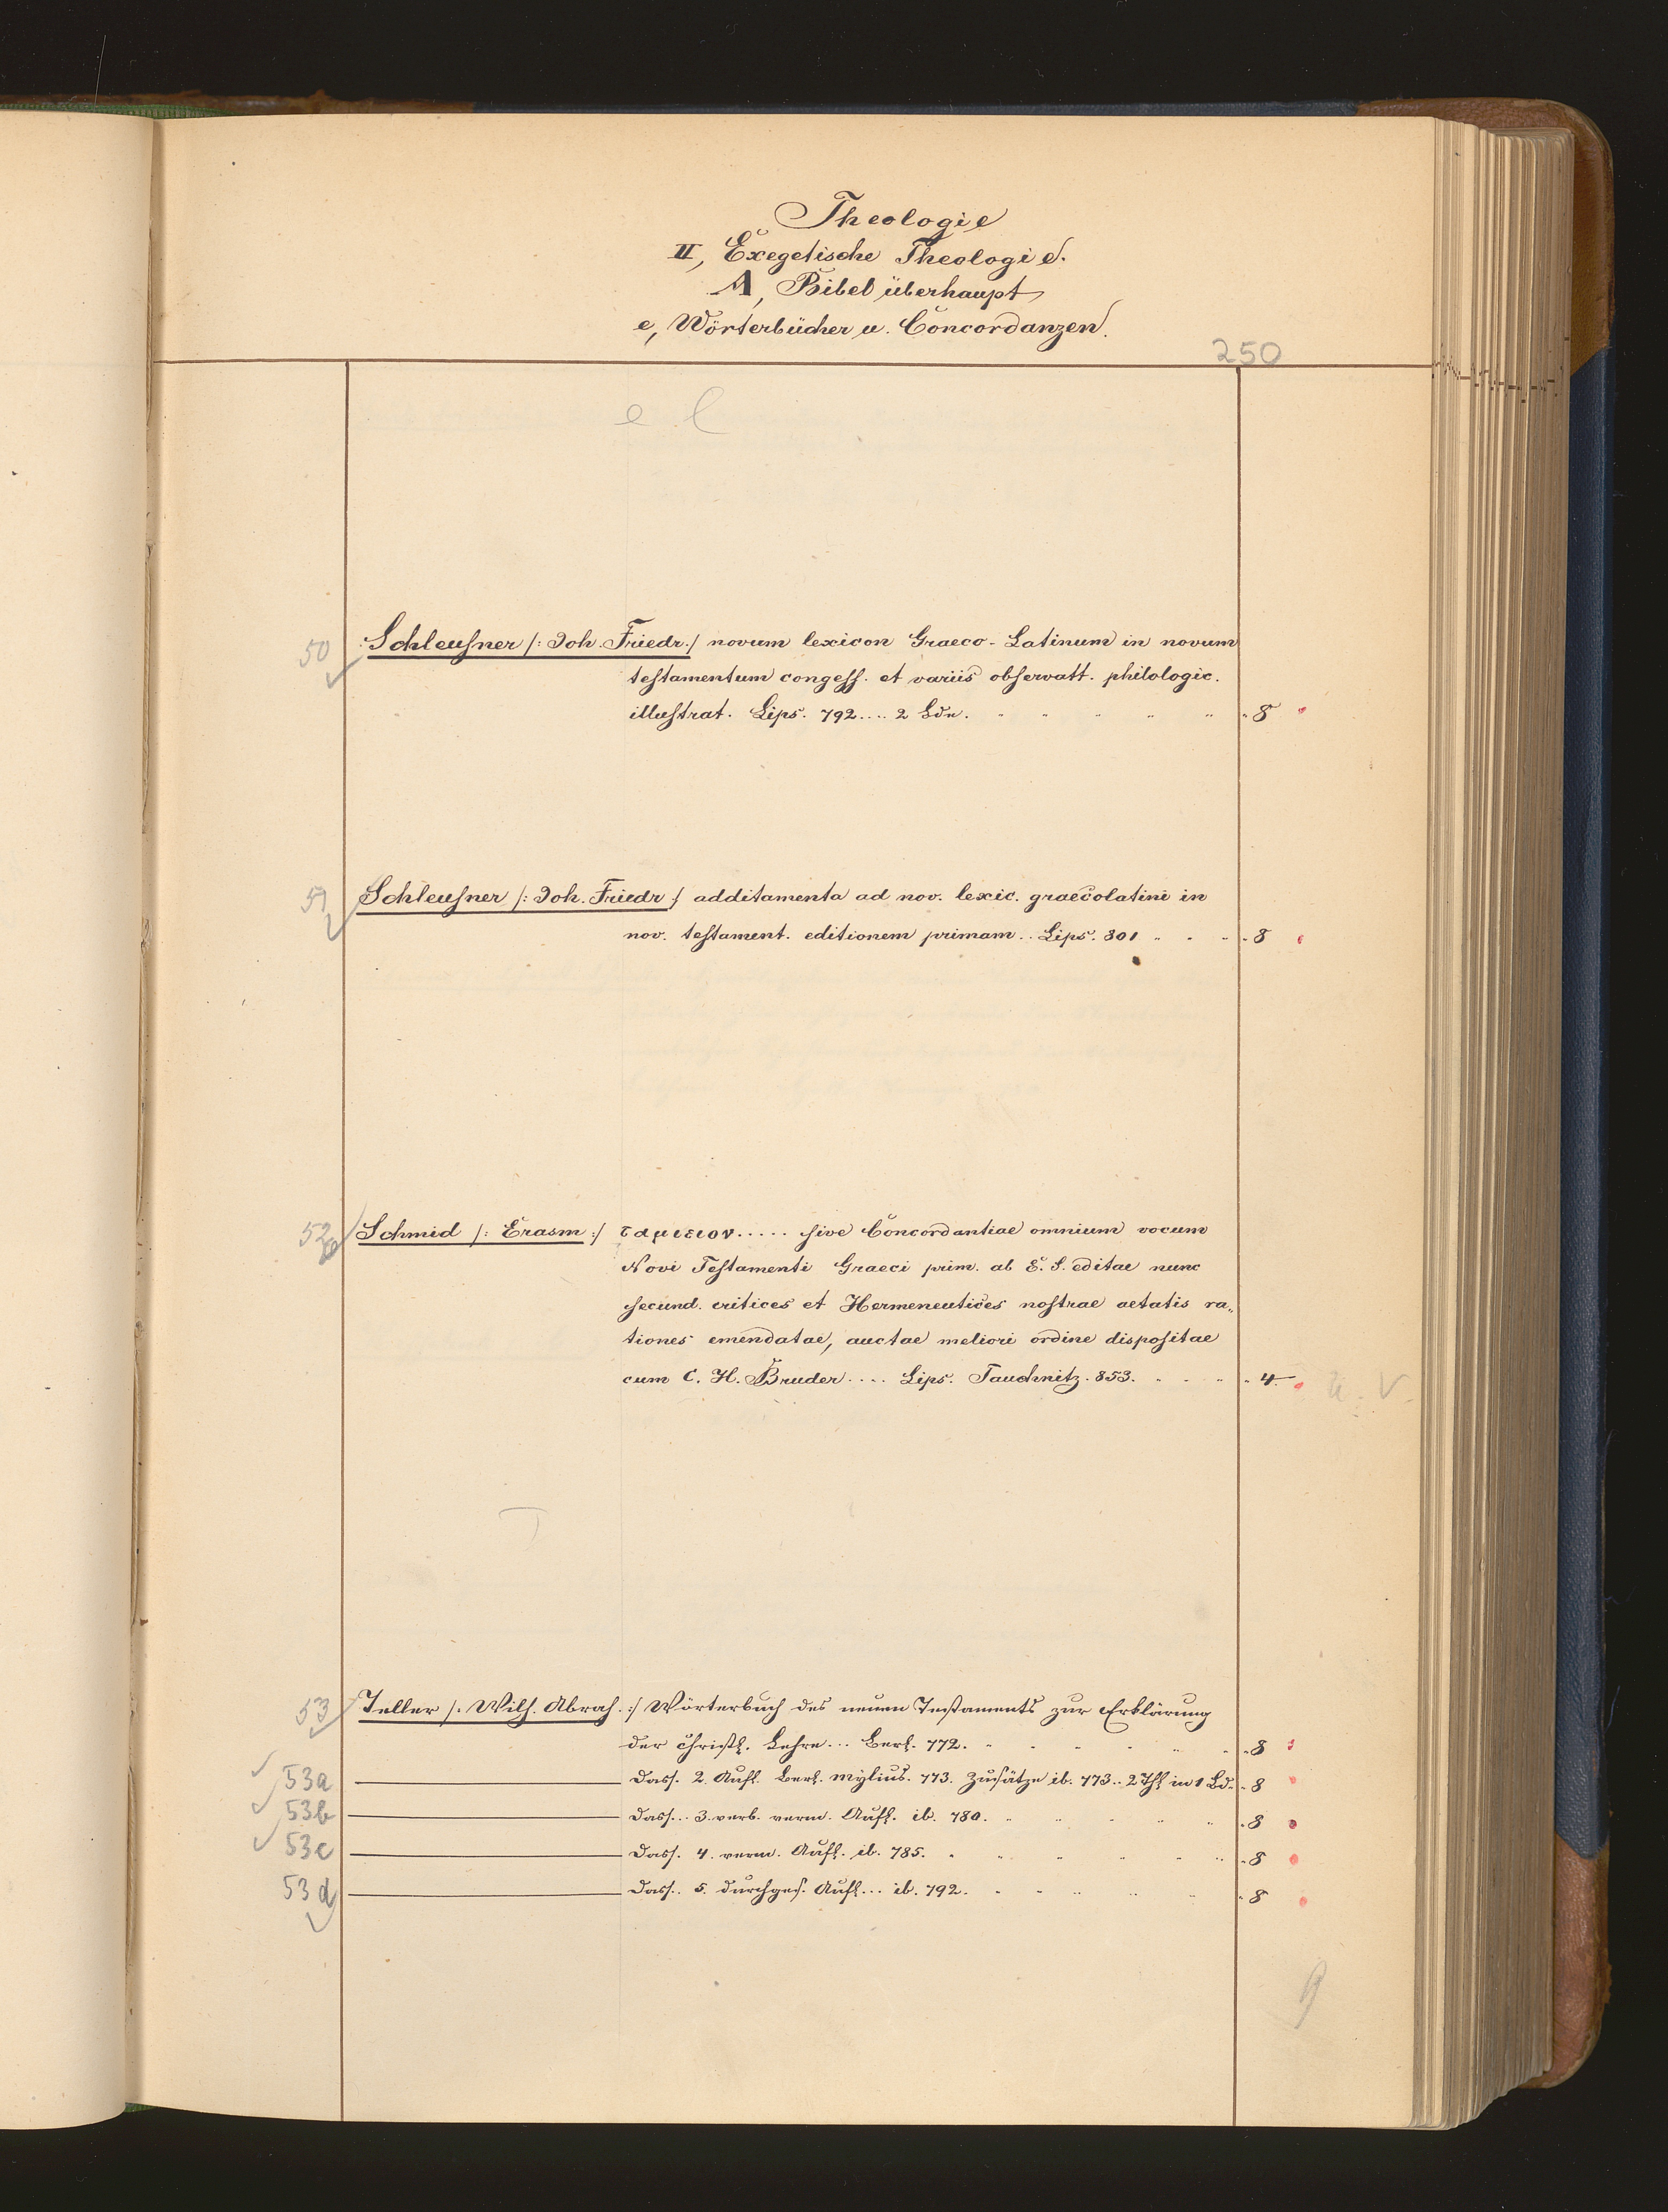 Theologie
II, Exegetische Theologie.
A, Bibel überhaupt
e, Wörterbücher u. Concordanzen.
250
e l
50 Schleusner /: Joh. Friedr. :/ novum lexicon Graeco-Latinum in novum
testamentum congess. et variis observatt. philologic.
illustrat. Lips. 792.... 2 Bde. 8
51 Schleusner /: Joh. Friedr :/ additamenta ad nov. lexic. graecolatini in
nov. testament. editionem primam.. Lips. 801 8
52 Schmid /: Erasm :/ ταμιειον..... sive Concordantiae omnium vocum
Novi Testamenti Graeci prim. ab E. S. editae nunc
secund. critices et Hermeneutices nostrae aetatis ra„
tiones emendatae, auctae meliori ordine dispositae
cum C. H. Bruder.... Lips. Tauchnitz. 853. 4.
T
53 Teller /: Wilh. Abrah. :/ Wörterbuch des neuen Testaments zur Erklärung
der christl. Lehre... Berl. 772. 8
53a Dass. 2. Aufl. Berl. Mylius. 773. Zusätze ib. 773.. 2 Thl in 1 Bd. 8
53b Dass... 3. verb. verm. Aufl. ib. 780. 8
53c Dass. 4. verm. Aufl. ib. 785. 8
53d Dass.. 5. durchges. Aufl... ib. 792. 8
9